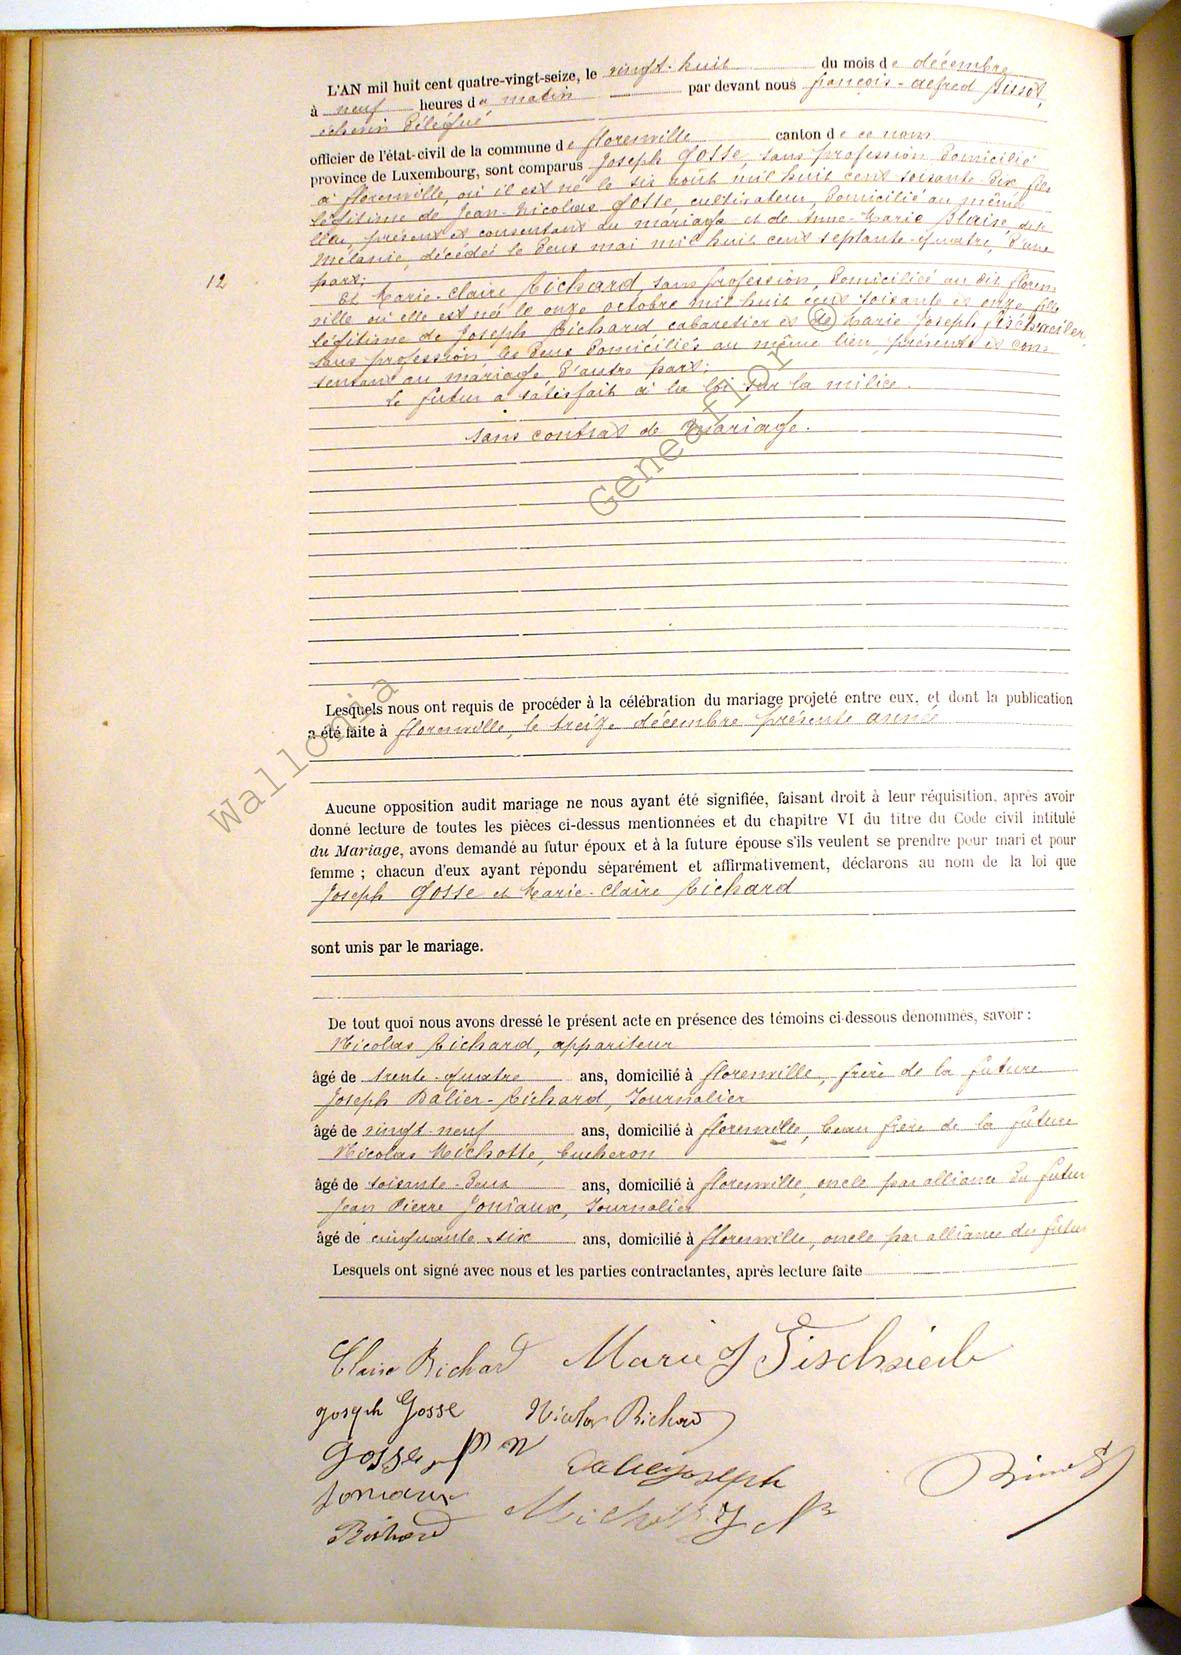 L'AN mil huit cent quatre-vingt-seize, le vingt-huit du mois de décembre
à neuf heures du matin par devant nous françois-alfred
échevin délégué
officier de l'état-civil de la commune de florenville canton de ce nom
province de Luxembourg, sont comparus Joseph Gosse, sans profession domicilié
à florenville, où il est né le six août mil huit cent soixante-dix, fils
légitime de Jean-Nicolas Gosse, cultivateur, domicilié au même
lieu, présent et consentant au mariage et de Anne-Marie Blaise, dite
Mélanie, décédée le deux mai mil huit cent septante-quatre, d'une
part;
12
Et Marie-Claire Richard, sans profession, domiciliée au dit floren
ville où elle est née le onze octobre mil huit cent soixante et onze fille
légitime de Joseph Richard, cabaretier et de Marie Joseph
sans profession les deux domiciliés au même lieu, présents et con
sentant au mariage, d'autre part;
le futur a satisfait à la loi sur la milice.
sans contrat de mariage.
Lesquels nous ont requis de procéder à la célébration du mariage projeté entre eux, et dont la publication
a été faite à florenville, le treize décembre présente année
Aucune opposition audit mariage ne nous ayant été signifiée, faisant droit à leur réquisition, après avoir
donné lecture de toutes les pièces ci-dessus mentionnées et du chapitre VI du titre du Code civil intitulé
du Mariage, avons demandé au futur époux et à la future épouse s'ils veulent se prendre pour mari et pour
femme ; chacun d'eux ayant répondu séparément et affirmativement, déclarons au nom de la loi que
Joseph Gosse et Marie-Claire Richard
sont unis par le mariage.
De tout quoi nous avons dressé le présent acte en présence des témoins ci-dessous dénommés, savoir :
Nicolas Richard, appariteur
âgé de trente-quatre ans, domicilié à florenville, frère de la future
Joseph Dalier-Richard, Journalier
âgé de vingt-neuf ans, domicilié à florenville, beau frère de la future
Nicolas Michotte, bucheron
âgé de soixante-deux ans, domicilié à florenville, oncle par alliance du futur
Jean Pierre Joniaux, Journalier
âgé de cinquante-six ans, domicilié à florenville, oncle par alliance du futur
Lesquels ont signé avec nous et les parties contractantes, après lecture faite
Claire Richard Marie J
Joseph Gosse Nicolas Richard
Gosse, J N Joseph
Joniaux
Richard
Wallonia Geneoflor ©